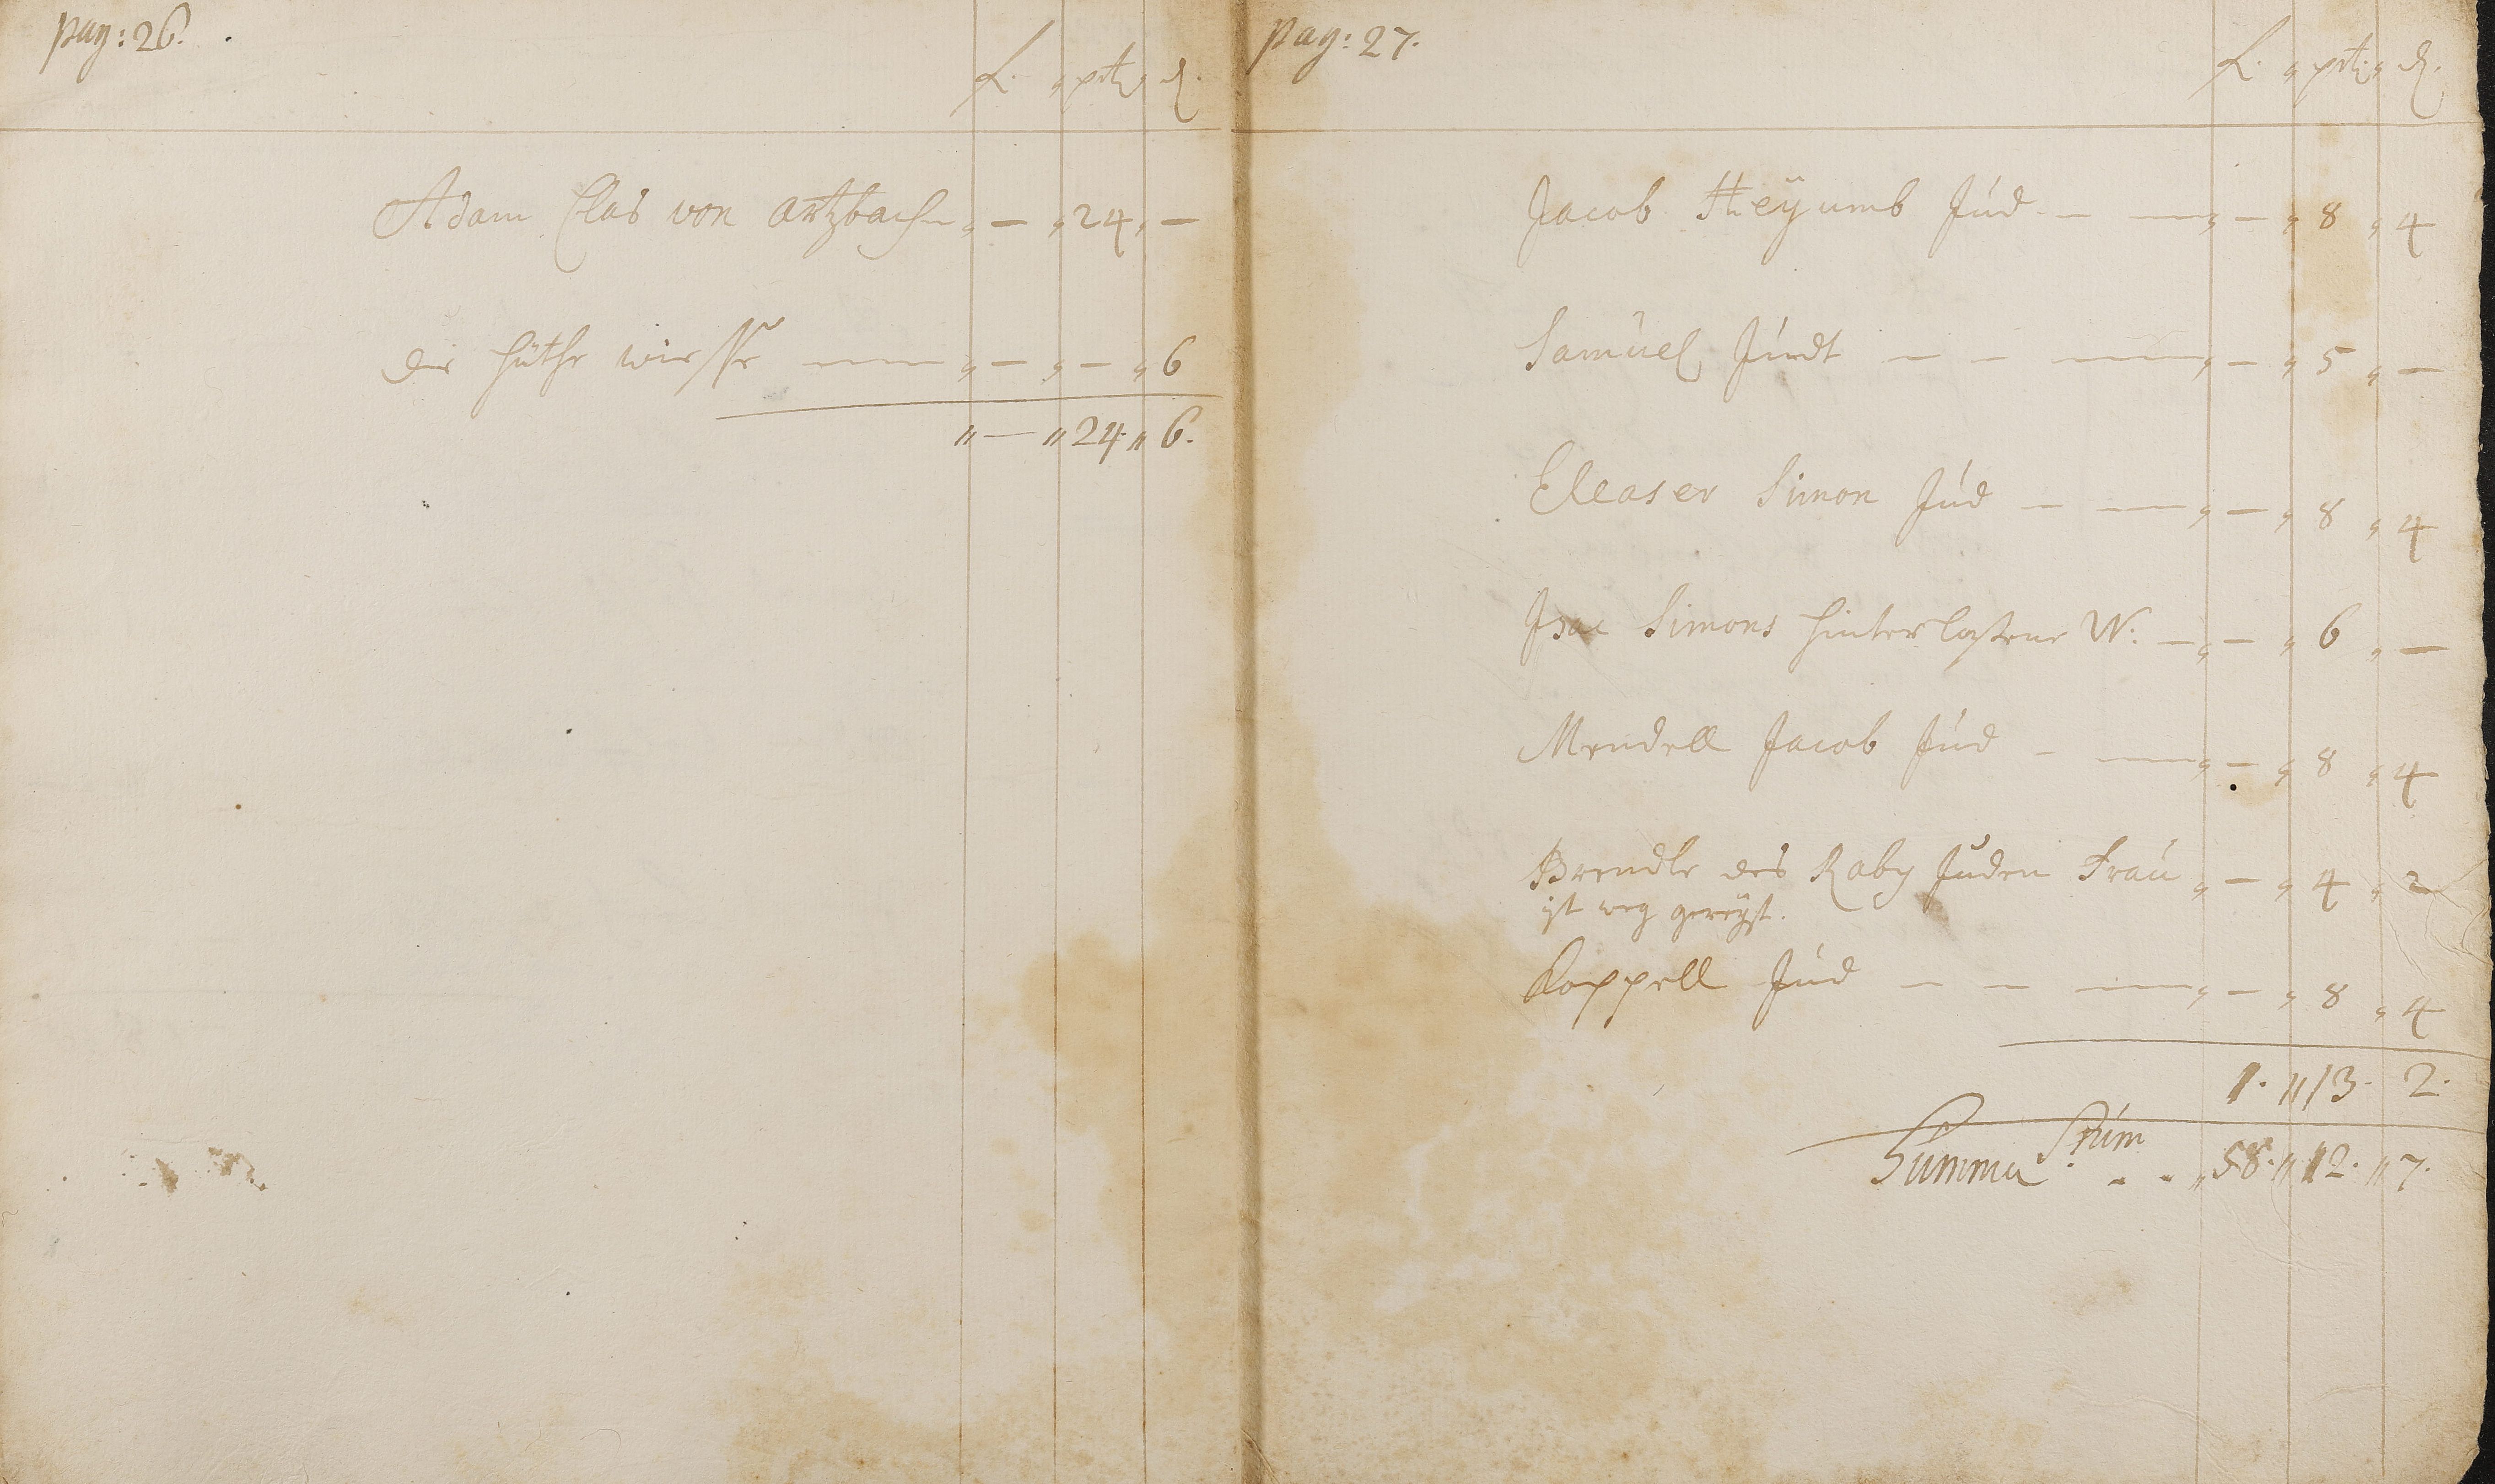 pag: 26.
f. " ptz " d.
Adam Clas von artzbach " — " 24 " —
die hüthe wiesse " — " — " 6
" — " 24. " 6.
pag: 27.
f. " ptz " d.
Jacob Heÿumb Júd — " — " 8 " 4
Samúel Júdt — — " — " 5 " —
Eleaser Simon Júd — — " — " 8 " 4
Isac Simons hinterlaßene W: — " — " 6 " —
Mendell Jacob Júd — — " — " 8 " 4
Brendle des Raby Juden Fraú " — " 4 " 2
ist weg gereÿst.
Koppell Júd — — " — " 8 " 4
1. " 13. 2.
Summa - - " 58. " 12. " 7.